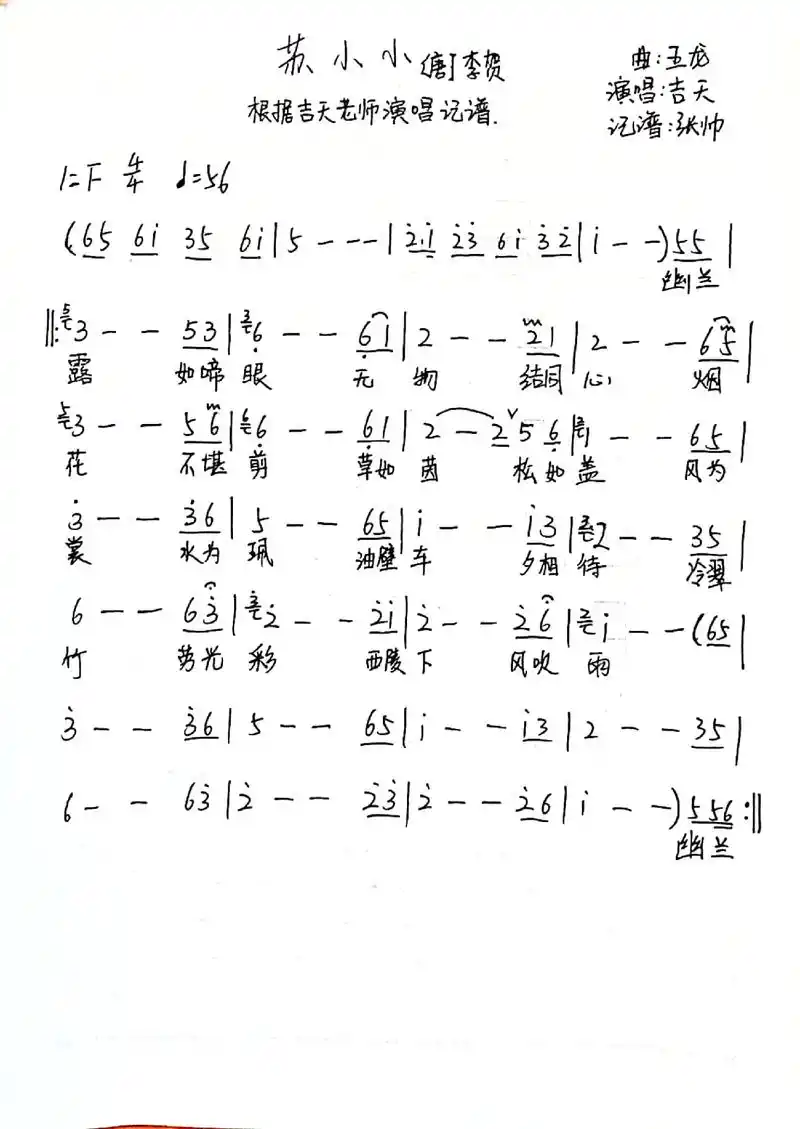 苏小小 [唐]李贺
曲:王龙
根据吉天老师演唱记谱.
演唱:吉天
记谱:张帅
1=F 4/4 ♩=56
(65 6i 35 6i | 5 - - - | 2̇·i 2̇3̇ 6i 3̇2̇ | i - -) 55 |
幽兰
‖: 3 - - 53 | 6̣ - - 6̣1 | 2 - - 21 | 2 - - 6̣5̣ |
露 如啼 眼 无 物 结同 心 烟
3 - - 56 | 6̣ - - 6̣1 | 2 - 2 5 6̣ | 1 - - 65 |
花 不堪 剪 草如 茵 松如 盖 风为
3̇ - - 3̇6 | 5 - - 65 | i - - i3 | 2 - - 35 |
裳 水为 珮 油壁 车 夕相 待 冷翠
6 - - 63̇ | 2̇ - - 2̇i | 2̇ - - 2̇6 | i - - (65 |
竹 劳光 彩 西陵 下 风吹 雨
3̇ - - 3̇6 | 5 - - 65 | i - - i3 | 2 - - 35 |
6 - - 63̇ | 2̇ - - 2̇3̇ | 2̇ - - 2̇6 | i - -) 556 :‖
幽兰